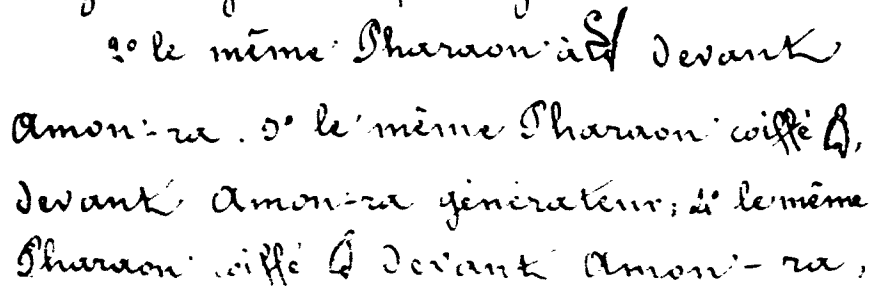 2° le même Pharaon à devant
Amon-ra. 3° le même Pharaon coiffé,
devant Amon-ra générateur; 4° le même
Pharaon coiffé devant Amon-ra,